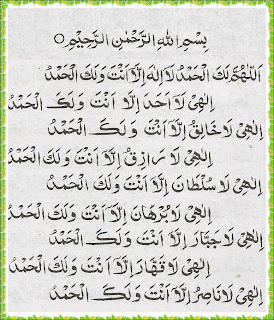 بِسْمِ اللهِ الرَّحْمٰنِ الرَّحِيْمِ ○
اَللّٰهُمَّ لَكَ الْحَمْدُ لَا اِلٰهَ اِلَّا اَنْتَ وَلَكَ الْحَمْدُ
اِلٰهِىْ لَا اَحَدَ اِلَّا اَنْتَ وَلَكَ الْحَمْدُ
اِلٰهِىْ لَا خَالِقُ اِلَّا اَنْتَ وَلَكَ الْحَمْدُ
اِلٰهِىْ لَا رَازِقُ اِلَّا اَنْتَ وَلَكَ الْحَمْدُ
اِلٰهِىْ لَا سُلْطَانَ اِلَّا اَنْتَ وَلَكَ الْحَمْدُ
اِلٰهِىْ لَا بُرْهَانَ اِلَّا اَنْتَ وَلَكَ الْحَمْدُ
اِلٰهِىْ لَا جَبَّارَ اِلَّا اَنْتَ وَلَكَ الْحَمْدُ
اِلٰهِىْ لَا قَهَّارَ اِلَّا اَنْتَ وَلَكَ الْحَمْدُ
اِلٰهِىْ لَا نَاصِرُ اِلَّا اَنْتَ وَلَكَ الْحَمْدُ